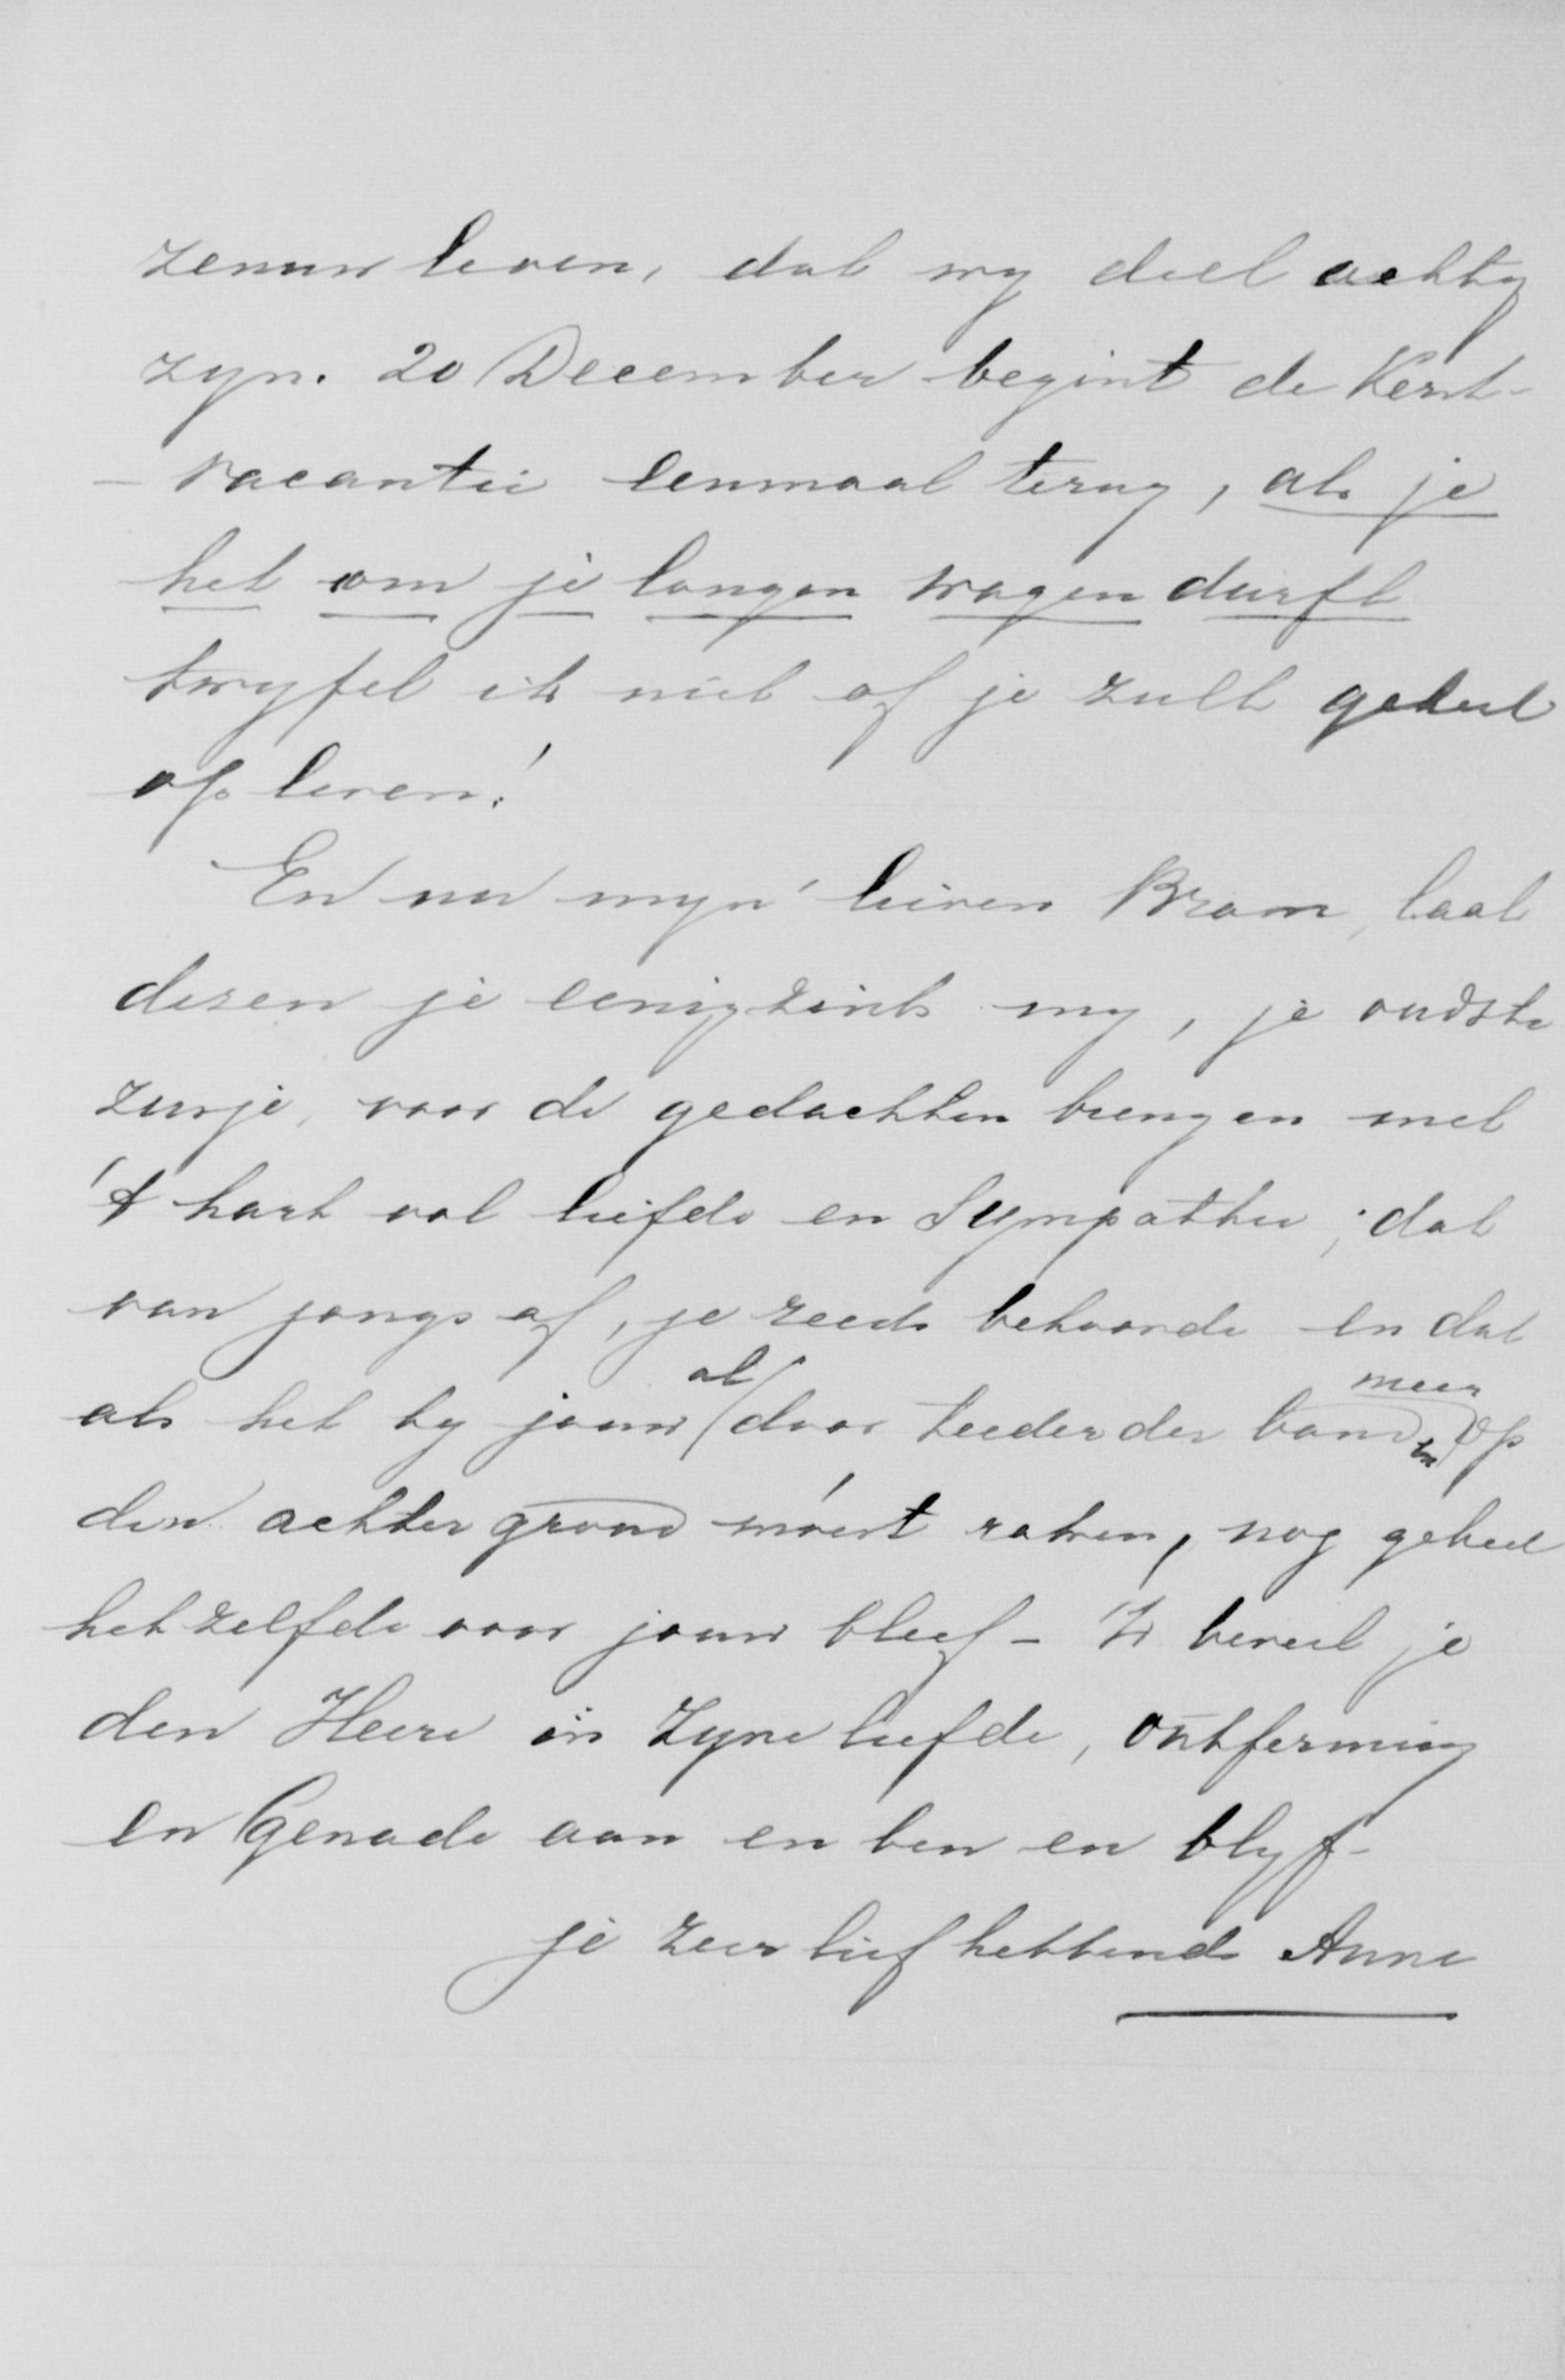 zenuwleven, dat wy deelachtig
zyn. 20 December begint de Kerst-
- vacantie eenmaal terug, als je
het om je longen wagen durft
twyfel ik niet of je zult geheel
op leven!
En nu myn lieven Bram, laat
dezen je eenigzints my, je oudste
zusje, voor de gedachten brengen met
't hart vol liefde en Sympathie; dat
van jongs af, je reeds behoorde en dat
als het by jouw al door teederder banden meer op
den achtergrond móest raken, nog geheel
hetzelfde voor jouw bleef - 'k beveel je
den Heere in Zyne liefde, ontferming
en Genade aan en ben en blyf -
je zeer liefhebbende Anna